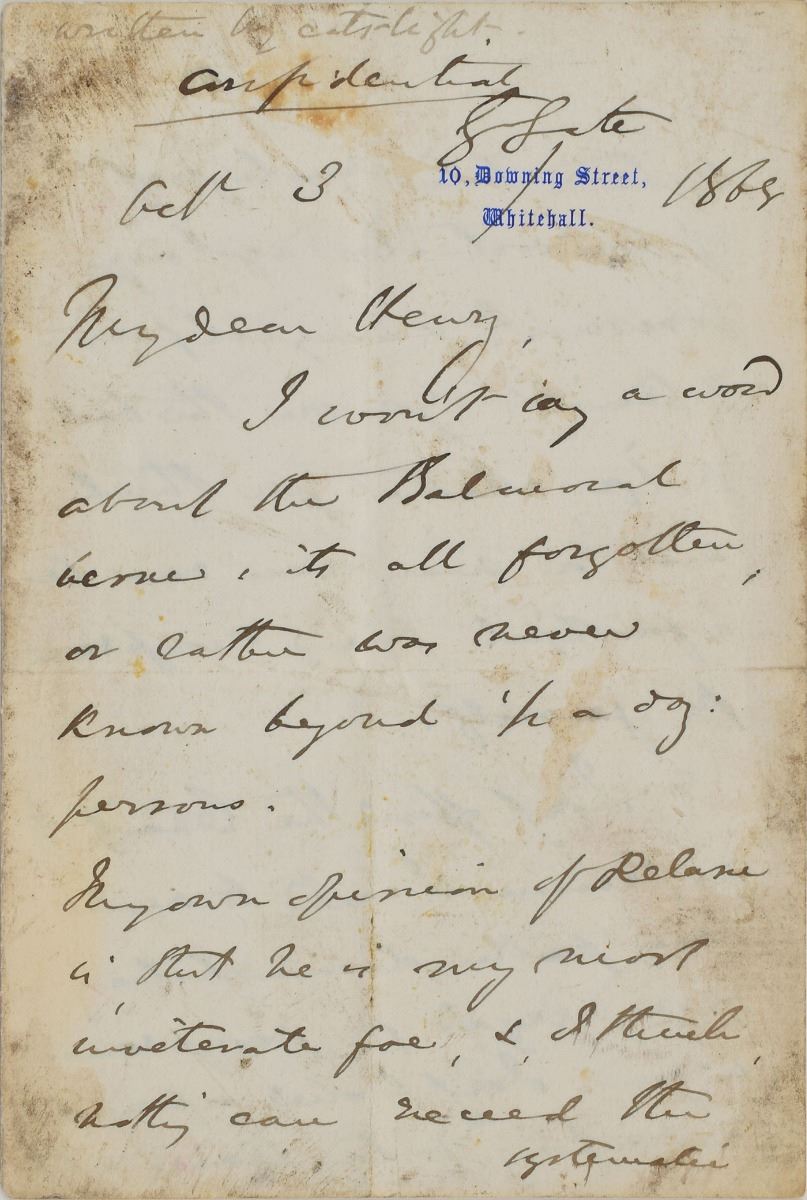 written by cats-light.
Confidential
G Gate
Octr 3 10, Downing Street, 1868
Whitehall.
My dear Henry,
I won't say a word
about the Balmoral
verses, its all forgotten,
or rather was never
known beyond ½ a doz:
persons.
My own opinion of Delane
is, that he is my most
inveterate foe, &, I think,
nothing can exceed the
systematic